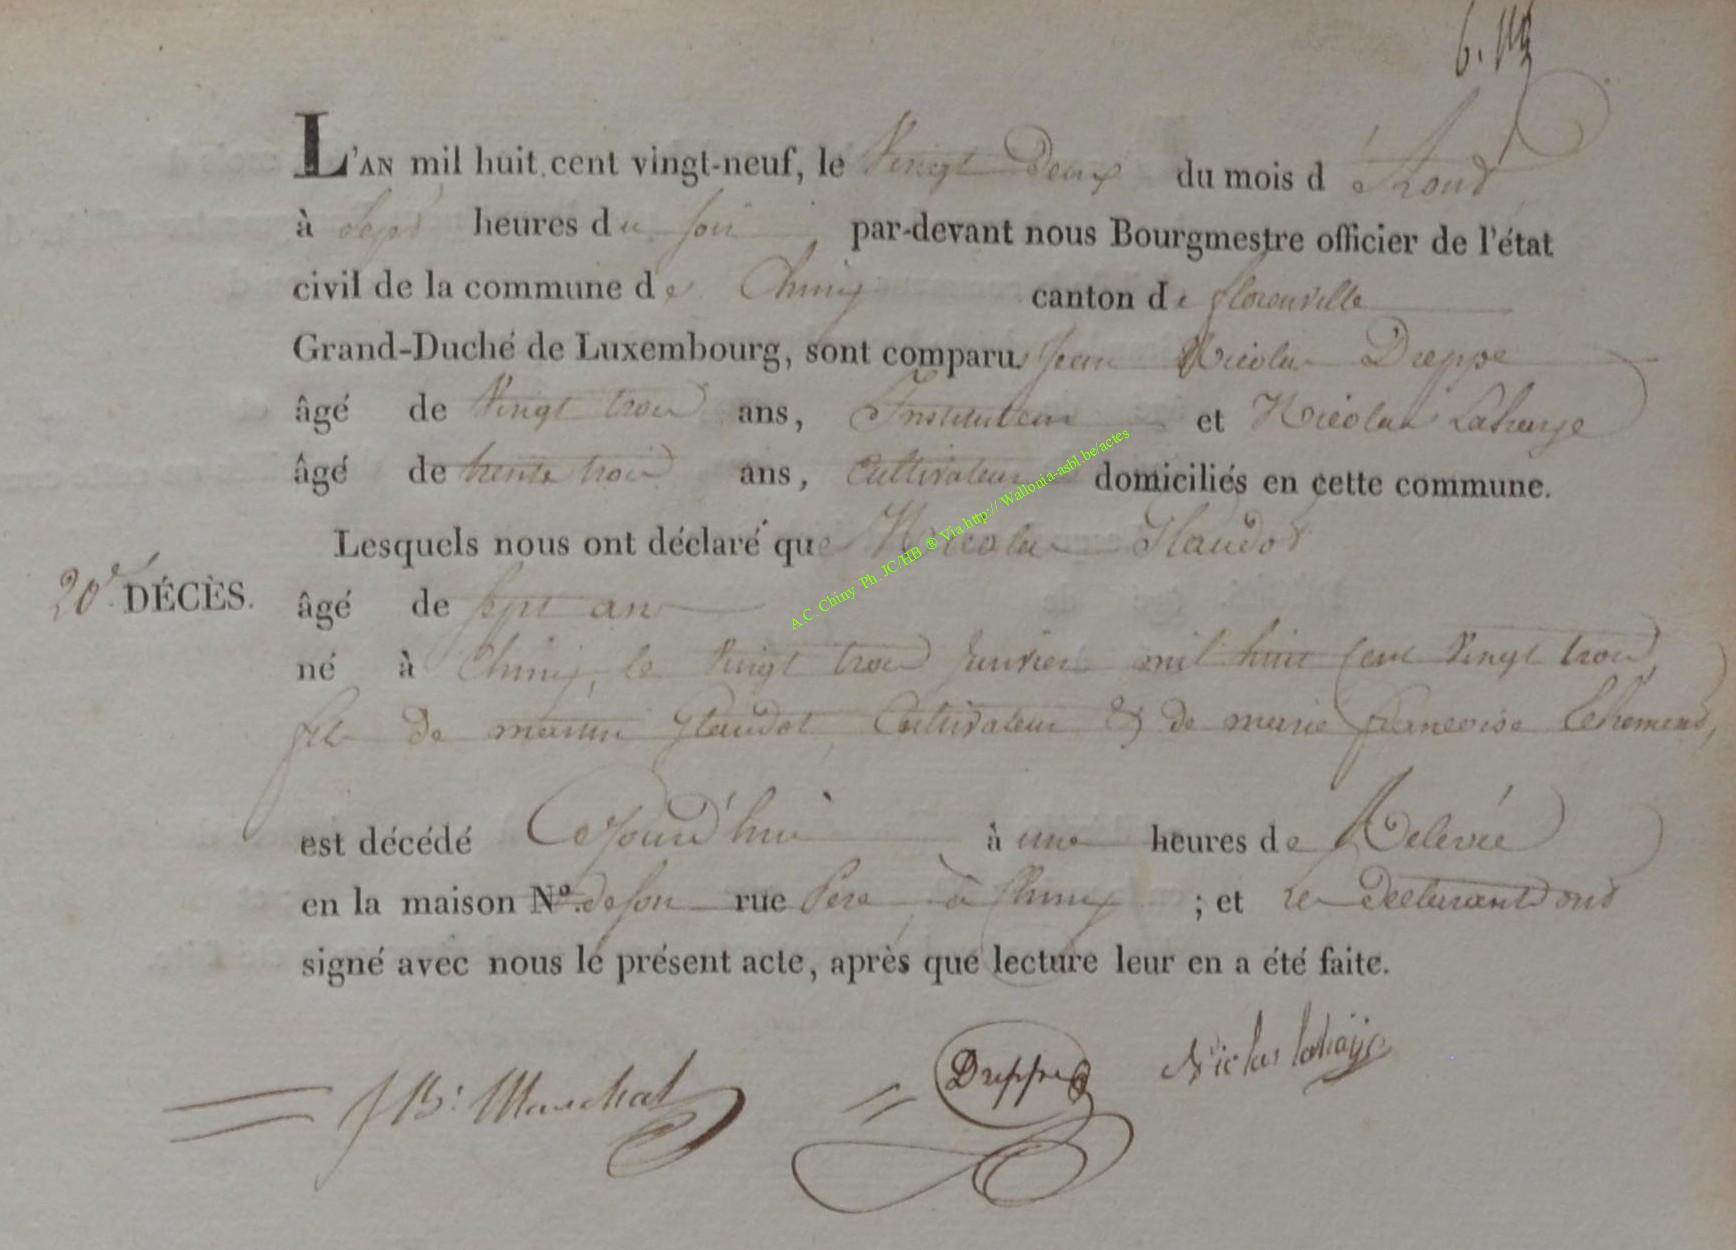 L'AN mil huit cent vingt-neuf, le Vingt Deux du mois d'Aout
à Sept heures du soir, par-devant nous Bourgmestre officier de l'état
civil de la commune de Chiny canton de florenville
Grand-Duché de Luxembourg, sont comparus Jean Nicolas Dreppe
âgé de Vingt trois ans, Instituteur et Nicolas Lahaye
âgé de trente trois ans, Cultivateur domiciliés en cette commune.
Lesquels nous ont déclaré que Nicolas Glaudot
20e DÉCÈS. âgé de sept ans
né à Chiny, le Vingt trois Janvier mil huit Cent Vingt trois,
fils de martin Glaudot, Cultivateur & de marie francoise
est décédé Cejourd'hui à une heures de Relevée
en la maison No. de son rue Pere à Chiny ; et les Declarants ont
signé avec nous le présent acte, après que lecture leur en a été faite.
JB: Marchal Dreppe Nicolas lahaÿe
A.C. Chiny Ph JC/HB ® Via http://Wallonia-asbl.be/actes